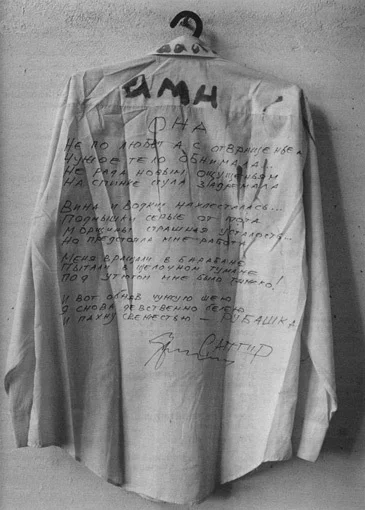 ОНА
НЕ ПО ЛЮБВИ А С ОТВРАЩЕНЬЕМ
ЧУЖОЕ ТЕЛО ОБНИМАЛА...
НЕ РАДА НОВЫМ ОЩУЩЕНЬЯМ
НА СПИНКЕ СТУЛА ЗАДРЕМАЛА
ВИНА И ВОДКИ НАХЛЕСТАЛАСЬ...
ПОДМЫШКИ СЕРЫЕ ОТ ПОТА
МОРЩИНЫ СТРАШНАЯ УСТАЛОСТЬ...
НО ПРЕДСТОЯЛА МНЕ РАБОТА
МЕНЯ ВРАЩАЛИ В БАРАБАНЕ
ПЫТАЛИ В ЩЕЛОЧНОМ ТУМАНЕ
ПОД УТЮГОМ МНЕ БЫЛО ТЯЖКО!
И ВОТ ОБНЯВ ЧУЖУЮ ШЕЮ
Я СНОВА ДЕВСТВЕННО БЕЛЕЮ
И ПАХНУ СВЕЖЕСТЬЮ — РУБАШКА
САПГИР